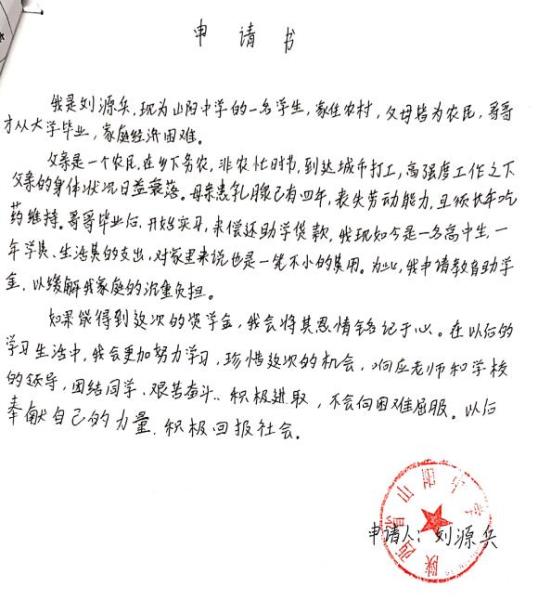 申请书
我是刘源兵,现为山阳中学的一名学生,家住农村,父母皆为农民,哥哥
才从大学毕业,家庭经济困难。
父亲是一个农民,在乡下务农,非农忙时节,到达城市打工,高强度工作之下
父亲的身体状况日益衰落。母亲患乳腺已有四年,丧失劳动能力,且须长年吃
药维持。哥哥毕业后,开始实习,来偿还助学贷款,我现如今是一名高中生,一
年学费、生活费的支出,对家里来说也是一笔不小的费用。为此,我申请教育助学
金,以缓解我家庭的沉重负担。
如果能得到这次的资学金,我会将其恩情铭记于心。在以后的
学习生活中,我会更加努力学习,珍惜这次的机会,响应老师和学校
的领导,团结同学,艰苦奋斗,积极进取,不会向困难屈服。以后
奉献自己的力量,积极回报社会。
陕西省山阳中学
申请人:刘源兵